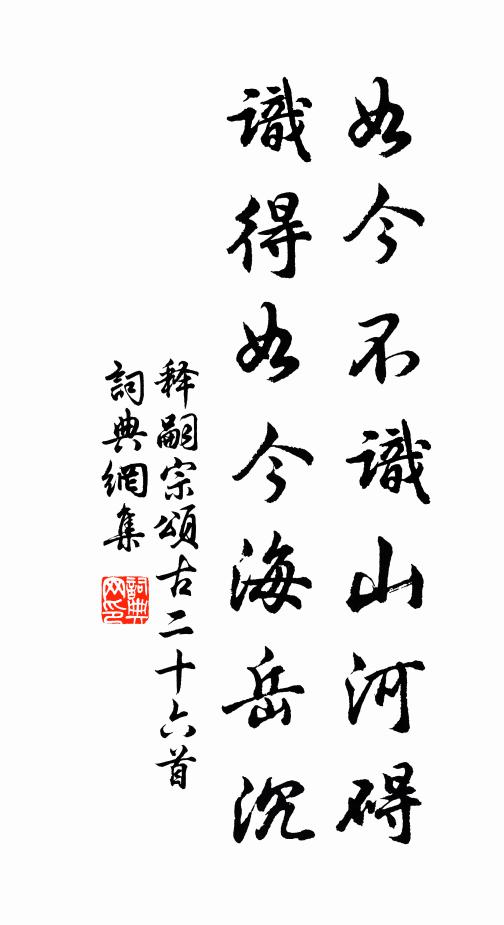 如今不識山河碍
識得如今海岳沉
释嗣宗頌古二十六首
詞典網集
詞典网印